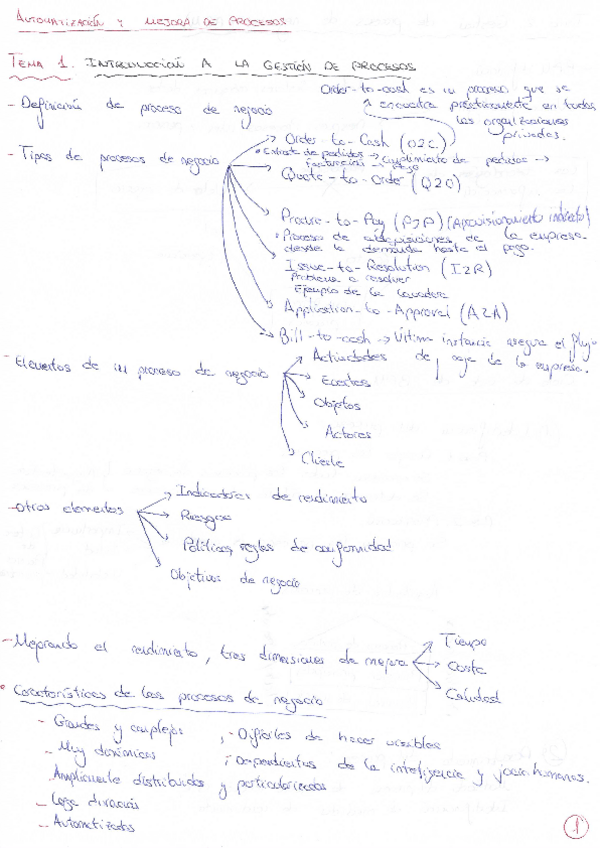 AUTOMATIZACIÓN Y MEJORA DE PROCESOS
TEMA 1. INTRODUCCIÓN A LA GESTIÓN DE PROCESOS
Order-to-cash es un proceso que se
encuentra prácticamente en todas
las organizaciones
privadas.
- Definición de proceso de negocio
- Tipos de procesos de negocio
Order-to-Cash (O2C)
• Entrada de pedidos → Cumplimiento de pedidos →
Facturación → Pago
Quote-to-Order (Q2O)
Procure-to-Pay (P2P) (Aprovisionamiento indirecto)
• Proceso de adquisiciones de la empresa
desde la demanda hasta el pago.
Issue-to-Resolution (I2R)
Problema a resolver
Ejemplo de la lavadora
Application-to-Approval (A2A)
Bill-to-cash → Última instancia asegura el flujo
de caja de la empresa.
- Elementos de un proceso de negocio
Actividades
Eventos
Objetos
Actores
Cliente
- Otros elementos
Indicadores de rendimiento
Riesgos
Políticas, reglas de conformidad
Objetivos de negocio
- Mejorando el rendimiento, tres dimensiones de mejora
Tiempo
Coste
Calidad
• Características de los procesos de negocio
- Grandes y complejos ; - Difíciles de hacer visibles
- Muy dinámicos ; Dependientes de la inteligencia y juicio humanos.
- Ampliamente distribuidos y particularizados
- Larga duración
- Automatizados
1